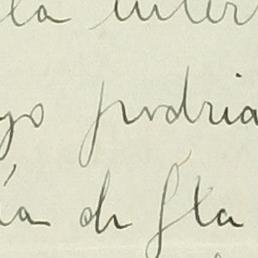 la inter
yo podria
ía de fla